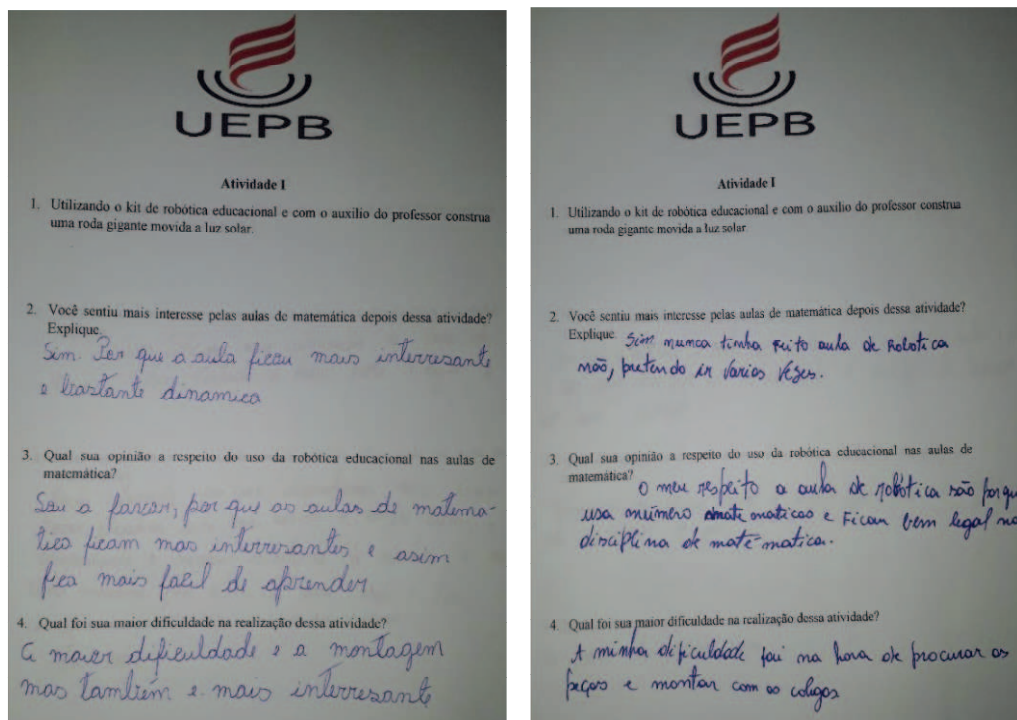 UEPB
Atividade I
1. Utilizando o kit de robótica educacional e com o auxílio do professor construa
uma roda gigante movida a luz solar.
2. Você sentiu mais interesse pelas aulas de matemática depois dessa atividade?
Explique.
Sim. Por que a aula ficou mais interresante
e bastante dinamica
3. Qual sua opinião a respeito do uso da robótica educacional nas aulas de
matemática?
Sou a favor, por que as aulas de matema-
tica ficam mas interresantes e asim
fica mais facil de aprender
4. Qual foi sua maior dificuldade na realização dessa atividade?
A maior dificuldade e a montagem
mas também e mais interresante
UEPB
Atividade I
1. Utilizando o kit de robótica educacional e com o auxílio do professor construa
uma roda gigante movida a luz solar.
2. Você sentiu mais interesse pelas aulas de matemática depois dessa atividade?
Explique. Sim nunca tinha feito aula de Robotica
não, pretendo ir varias vezes.
3. Qual sua opinião a respeito do uso da robótica educacional nas aulas de
matemática? O meu respeito a aula de robótica são porque
usa número matematicos e Ficar bem legal na
disciplina de matematica.
4. Qual foi sua maior dificuldade na realização dessa atividade?
A minha dificuldade foi na hora de procurar as
peças e montar com os colegas